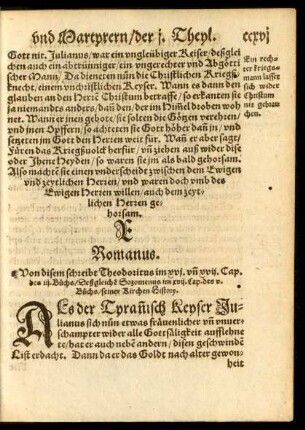 vnd Martyrern/der j. Theyl. ccxvj
Gott nit. Julianus/war ein vngleübiger Keiser/deßglei
chen auch ein abtrünniger/ein vngerechter vnd Abgötti
scher Mann/Da dieneten nün die Christlichen Kriegß
knecht/einem vnchristlichen Keyser. Wann es dann den
glauben an den Herrē Christum betraffe/so erkanten sie
ja niemandts anders/dañ den/der im Himel droben woh
net. Wann er jnen gebote/sie solten die Götzen verehren/
vnd jnen Opffern/so achteten sie Gott höher dañ jn/vnd
setzeten im Gott den Herzen weit für. Wañ er aber sagt/
Füren das Kriegßuolck herfür/vñ ziehen auf wider dise
oder Jhene Heyden/so waren sie jm als bald gehorsam.
Also machtē sie einen vnderscheidt zwischen dem Ewigen
vnd zeytlichen Herzen/vnd waren doch vmb des
Ewigen Herzen willen/auch dem zeyt-
lichen Herzen ge-
horsam.
Ein rech-
ter kriegs-
mann lasset
sich wider
Christum
nit gebrau
chen.
Romanus.
Von disem schreibt Theodoritus im xvj. vñ xvij. Cap.
des iij. Büchs/Deßgleichē Sozomenus im xvij. Cap. des v.
Büchs/seiner Kirchen History.
ALs der Tyrañisch Keyser Ju-
lianus sich nün etwas fräuenlicher vñ vnuer-
schampter wider alle Gottsäligkeit aufflehne
te/hat er auch nebē andern/disen geschwindē
List erdacht. Dann da er das Goldt nach alter gewon-
heit